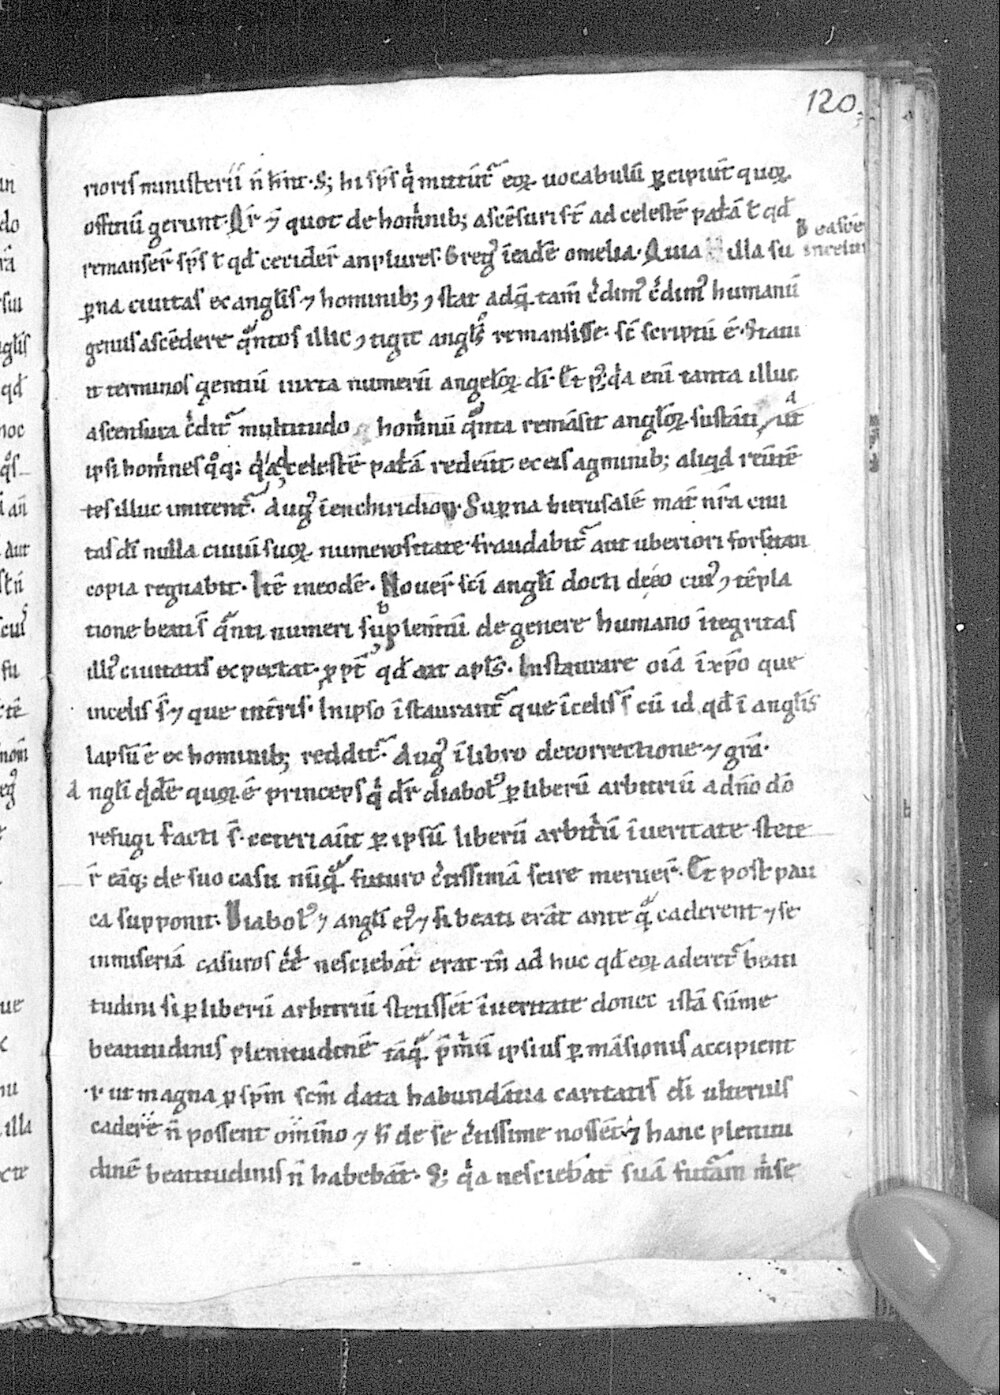 120
rioris ministerii n̄ hn̄t. S; hi sp̄s q͛ mittūt᷑ eoꝝ uocabulū ꝑcipiūt quoꝝ
offitiū gerunt. Qr̄ ⁊ quot de hom̄nib; ascēsuri st̄ ad celestē pat̄ā ł qđ
remanser̄ sp̄s ł qđ cecider̄ an plures. Greg᷒ ī eadē omelia. Quia illa su
ꝑna ciuitas ex angl̄is ⁊ hominib; ⁊stat adq̄ tam̄ c̄dim᷒ humanū
genus ascēdere q̄ntos illic ⁊tigit angl̄os remansisse. sc̄ scriptū ē. Statu
it terminos gentiū iuxta numerū angeloꝝ dī. Et
ascensura c̄dit᷑ multitudo hom̄nū q̄nta remāsit angl̄oꝝ
ipsi hom̄nes q̊q; q̄ ad celestē pat̄ā redeūt ex eis agminib; aliqđ
tes illuc imitent᷑. Aug᷒ ī enchiridion. Supꝛna hierusalē mat̄ nr̄a ciui
tas dī nulla ciuiū suoꝝ numerositate fraudabit᷑ aut uberiori forsitan
copia regnabit. Itē in eodē. Nouer̄ sc̄i angl̄i docti de ẽo cui᷒ ⁊tēpla
tione beati s̄ q̄nti numeri supplemtū de genere humano ītegritas
illi᷒ ciuitatis expectat. ꝓpt̄ qđ ait apl̄s. Instaurare oīā ī xp̄o que
in celis s̄ ⁊ que in t̄ris. In ipso īstaurant᷑ que ī celis s̄ cū id qđ ī angl̄is
lapsū ē ex hominib; reddit᷑. Aug᷒ ī libro de correctione ⁊ gr̄a.
Angl̄i qđē quoꝝ ē princeps q͛ dr̄ diabol᷒ ꝑ liberū arbitriū a dn̄o dō
refugi facti s̄. ceteri aūt ꝑ ipsū liberū arbitriū ī ueritate stete
r̄ eāq; de suo casu nūq̄ futuro c̄tissimā scire meruer̄. Et post pau
ca supponit. Diabol᷒ ⁊ angl̄i ei᷒ ⁊ si beati erāt ante q̄ caderent ⁊ se
in miseriā casuros ēē nesciebāt erat tn̄ ad huc qđ eoꝝ aderet᷑ beati
tudini si ꝑ liberū arbitriū stetissēt ī ueritate donec istā sūme
beatitudinis plenitudinē tāq̄ p̄miū ipsius ꝑmāsionis accipient
.i. ut magna ꝑ sp̄m scm̄ data habundātia caritatis dī ulterius
cadere n̄ possent omīno ⁊ h̄ de se c̄tissime nossēt ⁊ hanc plenitu
dinē beatitudinis n̄ habebāt. S; q͛a nesciebāt suā futāam m̄se